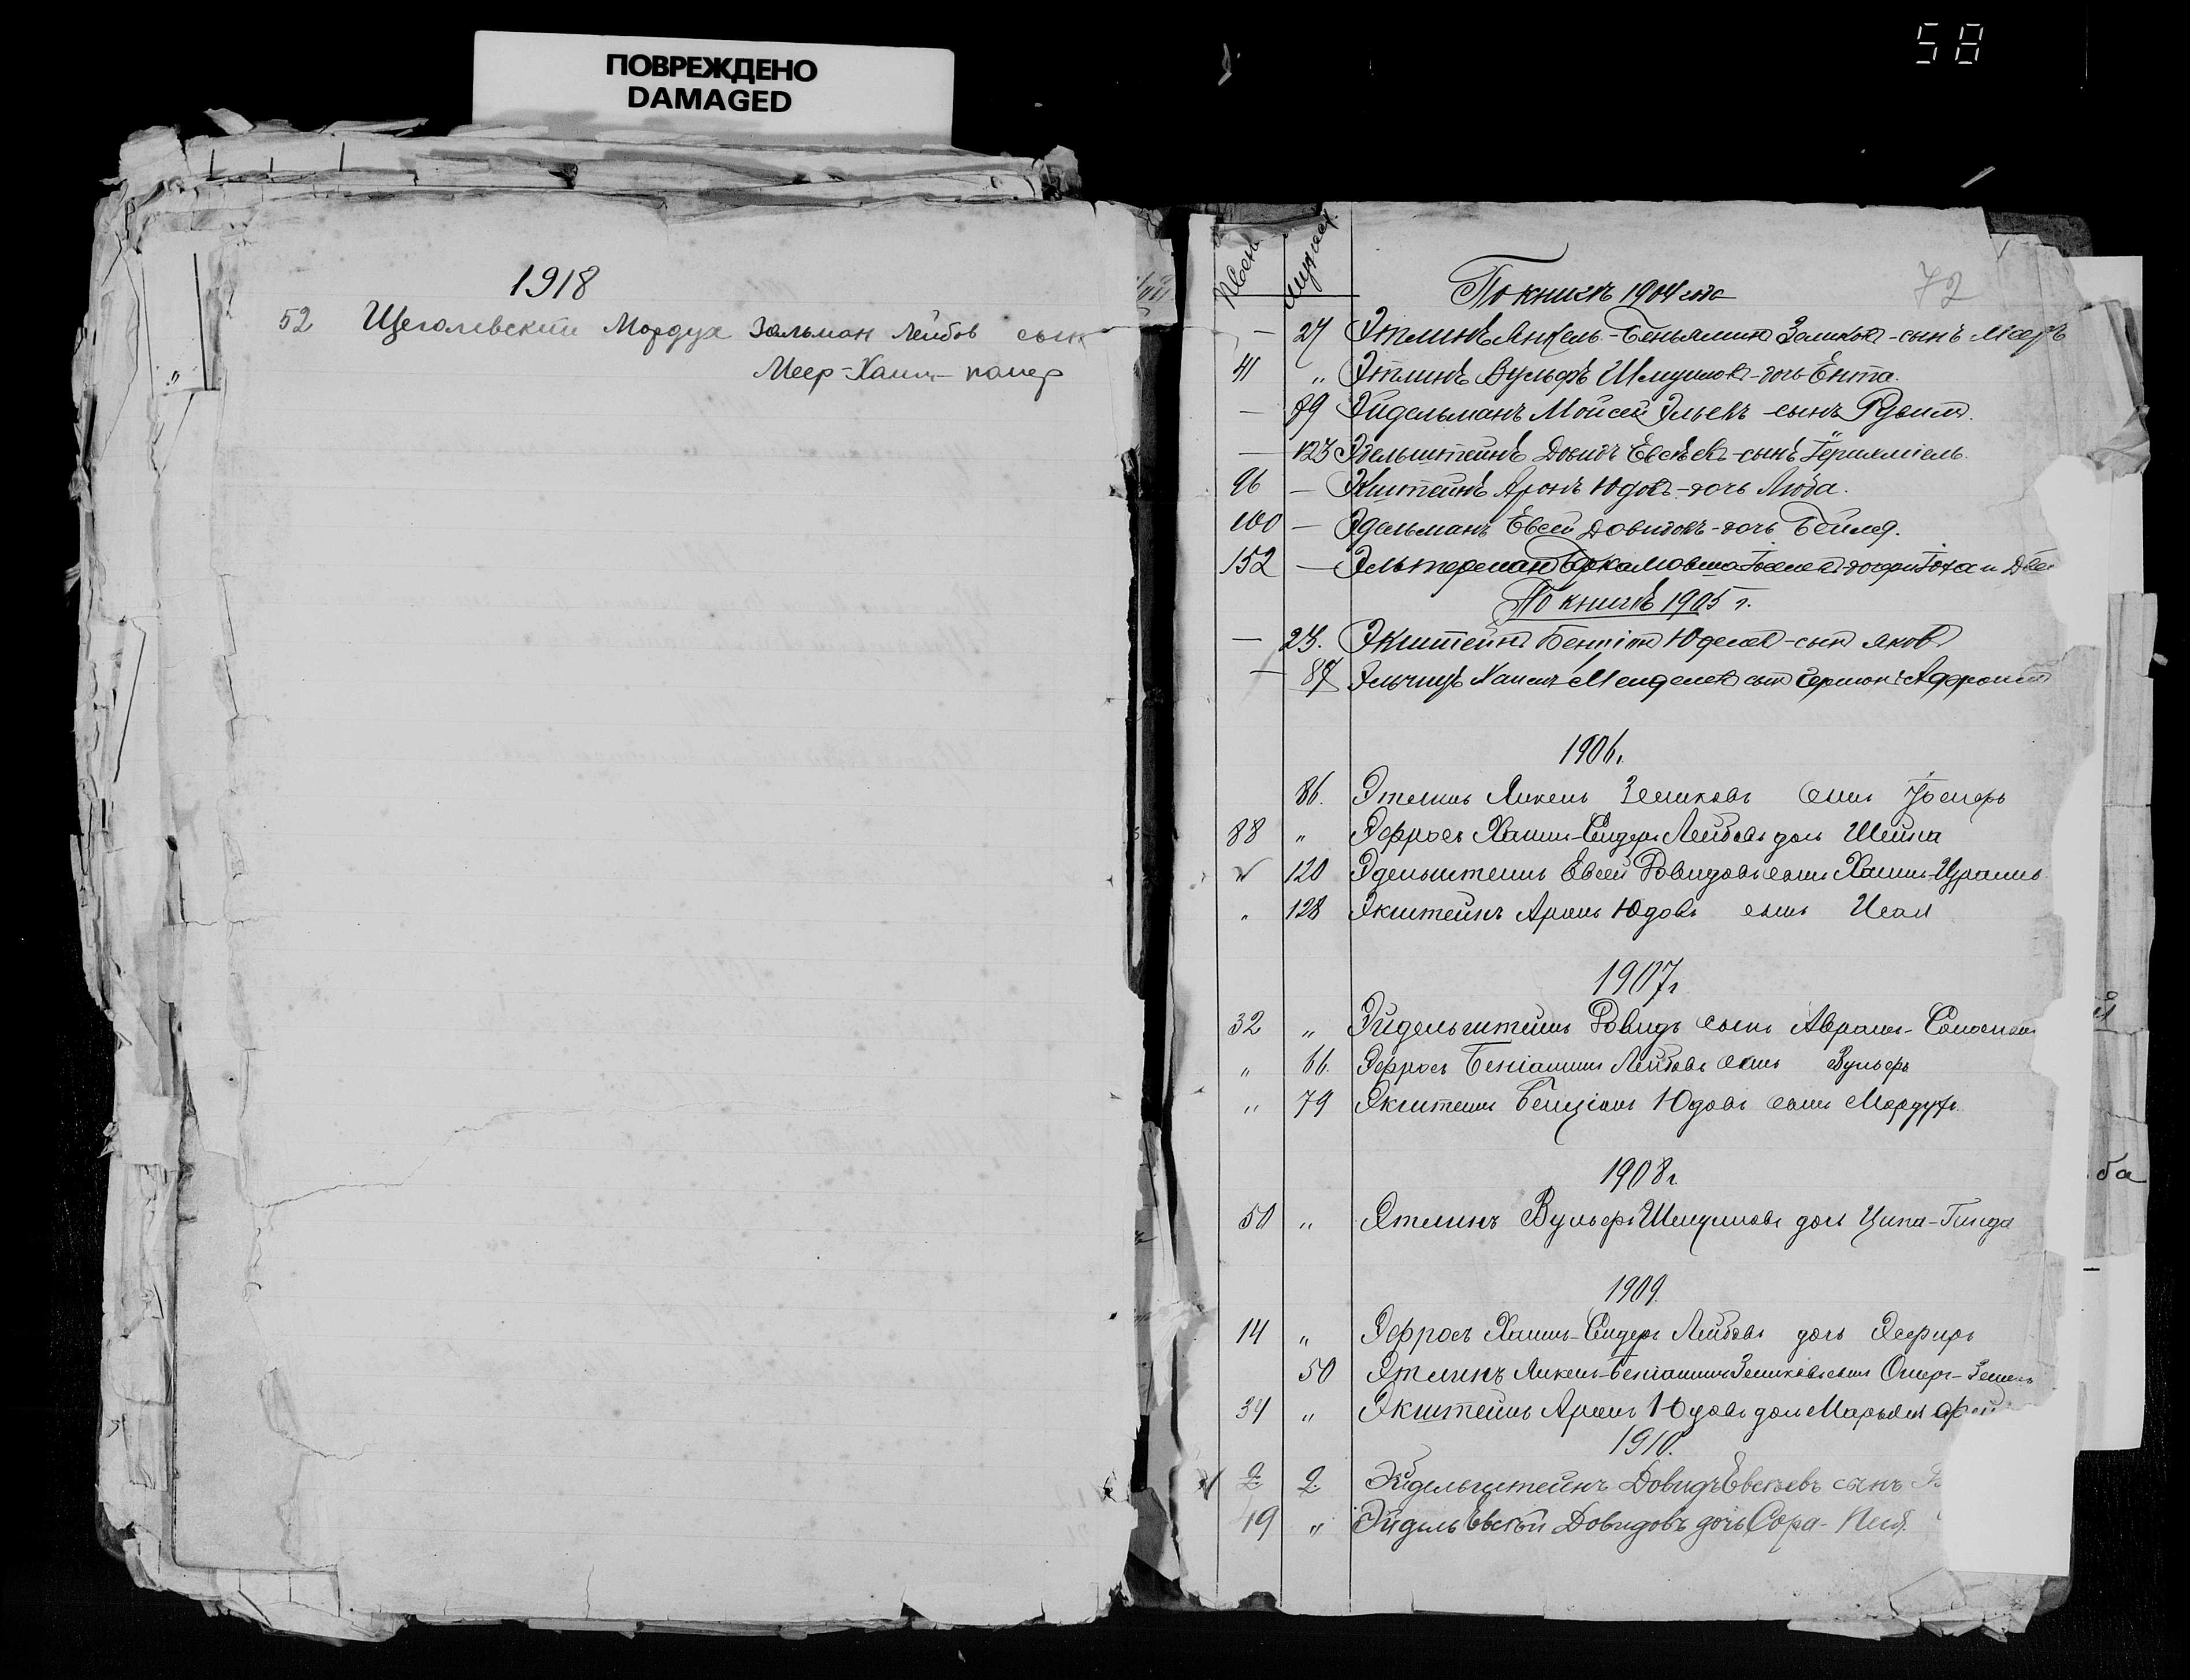 ПОВРЕЖДЕНО
DAMAGED
58
1918
52 Щеголевский Мордух Залман Лейбов сын
Меер-Хаим
женск мужеск
72
По книгѣ 1904 года
— 27 Этлинъ Янкель-Беньямин Зеликов-сынъ Мееръ
41 „ Этлинъ Вульфъ Шмуилов-дочь Ента.
— 89 Эйдельманъ Мойсей Эльевъ-сынъ Рувим.
— 123 Эдельштейнъ Довидъ Евсѣевъ-сынъ
96 — Экштейнъ Аронъ Юдовъ-дочь Люба.
100 — Эдельманъ Евсей Довидовъ-дочь Бейля.
152 — Эльтерман и
По книгѣ 1905 г.
— 23. Экштейнъ Бенціон Юделев-сын Яков
— 87 Хаимъ Менделев сын
1906г.
86. Этлинъ Янкель Зеликовъ сынъ
88 „ Эфросъ Хаимъ-Сендеръ Лейбовъ дочь Шейна
120 Эдельштейнъ Евсей Довидовъ сынъ Хаимъ-Израиль
„ 128 Экштейнъ Аронъ Юдовъ сынъ Исай
1907г
32 „ Эйдельштейнъ Довидъ сынъ Абрамъ-
„ 66. Эфросъ Беніаминъ Лейбовъ сынъ Вульфъ
„ 79 Экштейнъ Бенціонъ Юдовъ сынъ Мордухъ
1908г.
50 „ Этлинъ Вульфъ Шмуиловъ дочь Ципа-Гинда
1909.
14 „ Эфросъ Хаимъ-Сендеръ Лейбовъ дочь Эсфирь
50 Этлинъ Янкель-Беніаминъ Зеликовъ сынъ
34 „ Экштейнъ Аронъ Юдовъ дочь Марьям
1910.
2 2 Эйдельштейнъ Довидъ Евсѣевъ сынъ
49 „ Эйдель Евсей Довидовъ дочь Сора-
й
ба